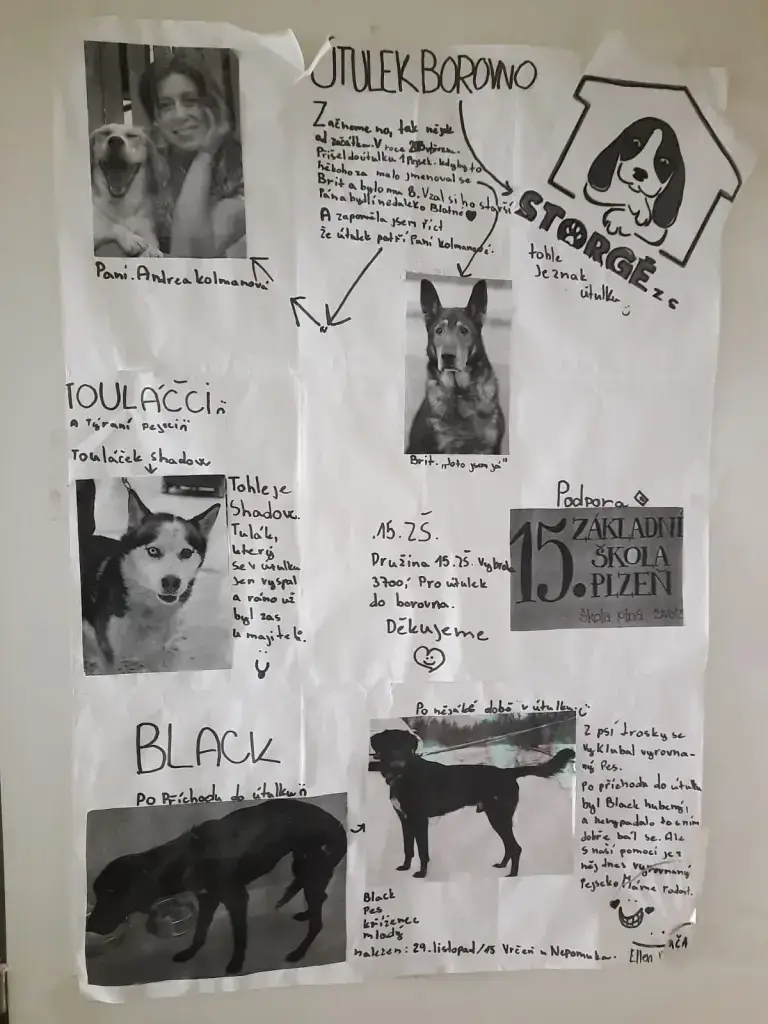 ÚTULEK BOROVNO
Začneme no, tak nějak
od začátku. V roce
Přišel do útulku 1 Pejsek. kdyby to
někoho za malo jmenoval se
Brit a bylo mu 8. Vzal si ho starší
Pána bydlí nedaleko Blatné
A zapoměla jsem říct
že útulek patří Paní Kolmanové.
STORGÉ z s
tohle
Je znak
útulku
Paní. Andrea Kolmanová
Brit. „Toto jsem já"
TOULÁČCI
A Týraní pejsci
Touláček shadow
Tohle je
Shadow.
Tulák,
který
se v útulku
jen vyspal
a ráno už
byl zas
u majitelů.
.15.ZŠ.
Družina 15.ZŠ. vybrala
3700,- Pro útulek
do borovna.
Děkujeme
Podpora
15. ZÁKLADNÍ
ŠKOLA
PLZEŇ
škola plná
BLACK
Po Příchodu do útulku
Po nějáké době v útulku
Z psí trosky se
vyklubal vyrovna-
ný Pes.
Po příchodu do útulku
byl Black hubený,
a nevypadalo to s ním
dobře bál se. Ale
S naší pomocí je z
něj dnes vyrovnaný
Pejsek. Máme radost.
Black
Pes
kříženec
mladý
nalezen: 29.listopad/15 Vrčeň u Nepomuka.
Ellen